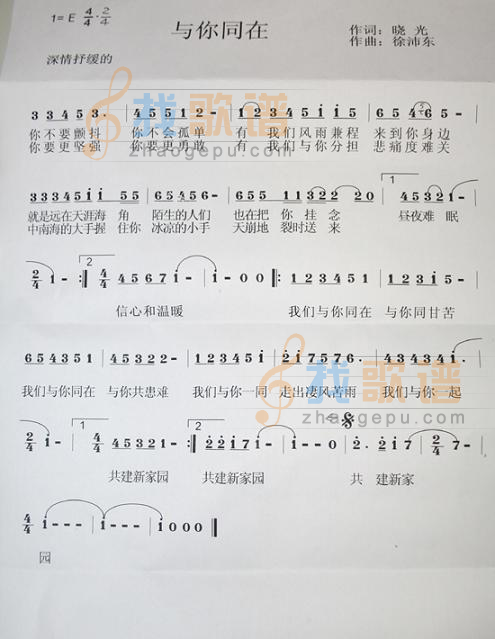 与你同在
1=E 4/4 · 2/4
作词：晓 光
作曲：徐沛东
深情抒缓的
3 3 4 5 3 . | 4 5 5 1 - | 1 2 3 3 4 5 i i 5 | 6 5 4 6 5 - |
你不要颤抖 你不会孤单 有 我们风雨兼程 来到你身边
你要更坚强 你要更勇敢 有 我们与你分担 悲痛度难关
找歌谱
zhaogepu.com
3 3 3 3 4 5 i i 5 5 | 6 5 4 5 6 - | 6 5 5 1 1 3 2 2 2 0 | 4 5 3 2 1 -
就是远在天涯海 角 陌生的人们 也在把 你 挂 念 昼夜难 眠
中南海的大手握 住你 冰凉的小手 天崩地 裂时送 来
2/4 i - :| 2 4/4 4 5 6 7 i - | i - 0 0 |: 1 2 3 4 5 i | 6 5 4 3 5 1 |
信心和温暖 我们与你同在 与你同甘苦
6 5 4 3 5 1 | 4 5 3 2 2 - | 1 2 3 4 5 i | 2 i 7 5 7 6 . | 4 3 4 3 4 i . |
我们与你同在 与你共患难 我们与你一同 走出凄风苦雨 我们与你一起
找歌谱
zhaogepu.com
2/4 i - | 1 4 5 3 2 1 - :| 2 2 2 i 7 i - | i - - 0 | 2 . 2 i 7 | 2/4 7 -
共建新家园 共建新家园 共 建新家
4/4 i - - - | i - - - | i 0 0 0 ||
园